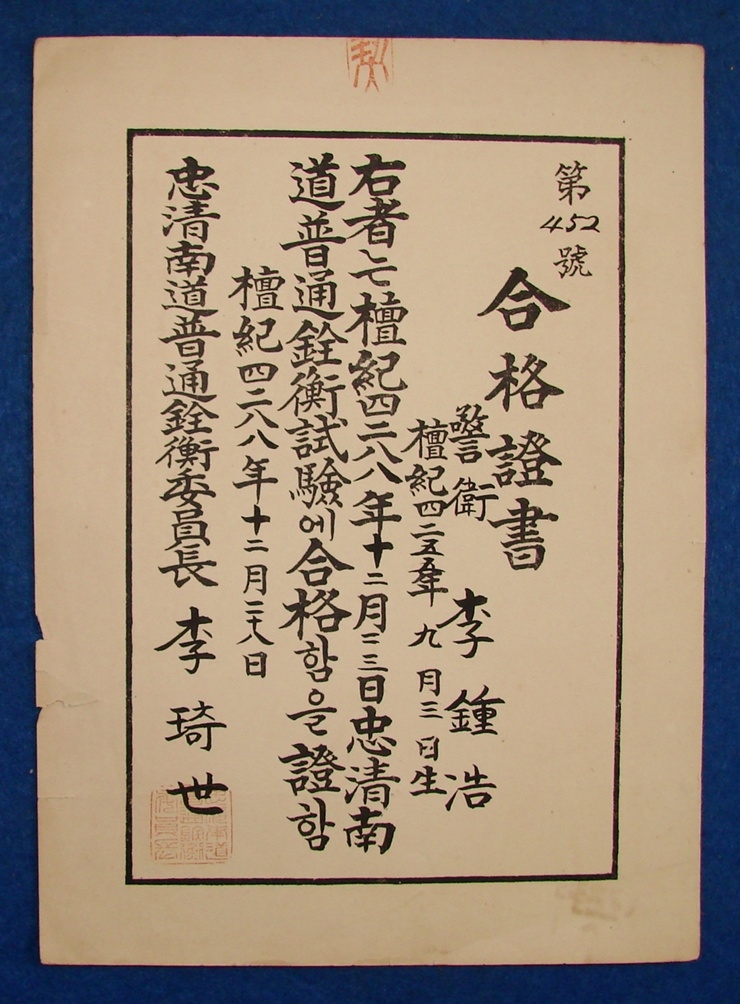 第
452
號
合格證書
警衛 李鍾浩
檀紀四二五五年九月三日生
右者는檀紀四二八八年十二月二三日忠清南
道普通銓衡試驗에合格함을證함
檀紀四二八八年十二月二十八日
忠清南道普通銓衡委員長 李琦世